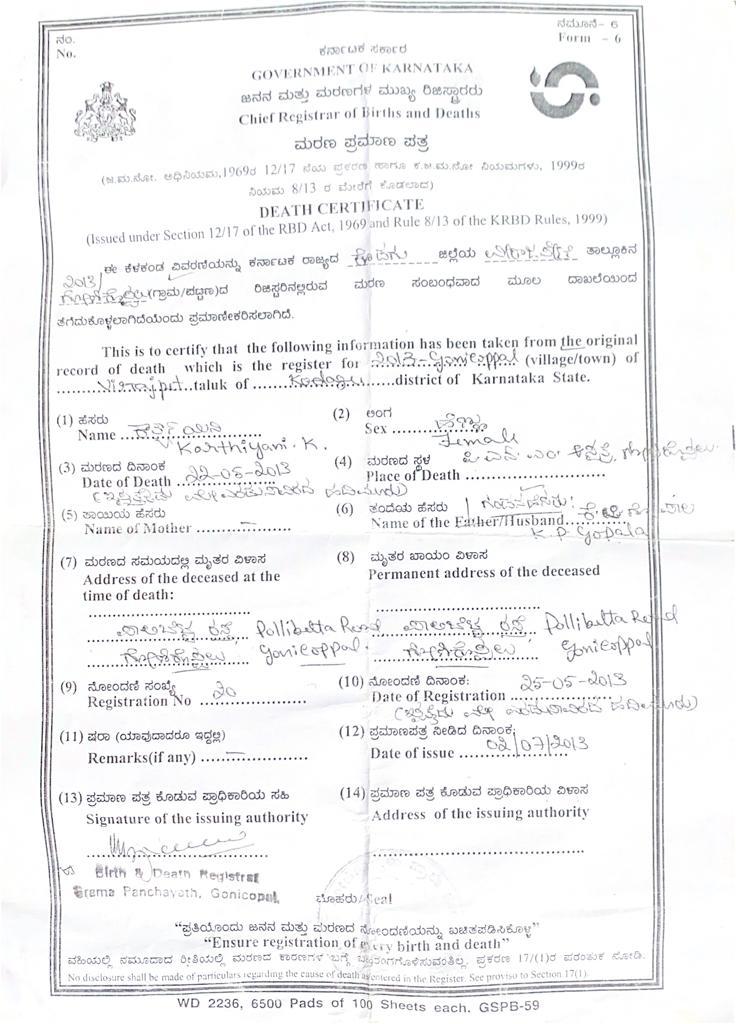 ನಂ.
No.
ನಮೂನೆ- 6
Form - 6
ಕರ್ನಾಟಕ ಸರ್ಕಾರ
GOVERNMENT OF KARNATAKA
ಜನನ ಮತ್ತು ಮರಣಗಳ ಮುಖ್ಯ ರಿಜಿಸ್ಟ್ರಾರರು
Chief Registrar of Births and Deaths
ಮರಣ ಪ್ರಮಾಣ ಪತ್ರ
(ಜ.ಮ.ನೋ. ಅಧಿನಿಯಮ,1969ರ 12/17 ನೆಯ ಪ್ರಕರಣ ಹಾಗೂ ಕ.ಜ.ಮ.ನೋ ನಿಯಮಗಳು, 1999ರ
ನಿಯಮ 8/13 ರ ಮೇರೆಗೆ ಕೊಡಲಾದ)
DEATH CERTIFICATE
(Issued under Section 12/17 of the RBD Act, 1969 and Rule 8/13 of the KRBD Rules, 1999)
ಈ ಕೆಳಕಂಡ ವಿವರಣೆಯನ್ನು ಕರ್ನಾಟಕ ರಾಜ್ಯದ ಕೊಡಗು ಜಿಲ್ಲೆಯ ವಿರಾಜಪೇಟೆ ತಾಲ್ಲೂಕಿನ
2013/ ಗೋಣಿಕೊಪ್ಪಲು (ಗ್ರಾಮ/ಪಟ್ಟಣ)ದ ರಿಜಿಸ್ಟರಿನಲ್ಲಿರುವ ಮರಣ ಸಂಬಂಧವಾದ ಮೂಲ ದಾಖಲೆಯಿಂದ
ತೆಗೆದುಕೊಳ್ಳಲಾಗಿದೆಯೆಂದು ಪ್ರಮಾಣೀಕರಿಸಲಾಗಿದೆ.
This is to certify that the following information has been taken from the original
record of death which is the register for 2013-Gonicoppal (village/town) of
Virajpet taluk of Kodagu district of Karnataka State.
(1) ಹೆಸರು
Name ಕಾರ್ತ್ಯಾಯಿನಿ
Karthiyani. K.
(2) ಲಿಂಗ
Sex ಹೆಣ್ಣು
Female
(3) ಮರಣದ ದಿನಾಂಕ
Date of Death 22-05-2013
(ಇಪ್ಪತ್ತೆರಡು ಮೇ ಎರಡುಸಾವಿರದ ಹದಿಮೂರು)
(4) ಮರಣದ ಸ್ಥಳ
Place of Death
(5) ತಾಯಿಯ ಹೆಸರು
Name of Mother –
(6) ತಂದೆಯ ಹೆಸರು / ಗಂಡನ ಹೆಸರು:
Name of the Father/Husband ಕೆ.ಪಿ ಗೋಪಾಲ
K.P Gopala
(7) ಮರಣದ ಸಮಯದಲ್ಲಿ ಮೃತರ ವಿಳಾಸ
Address of the deceased at the
time of death:
ಪಾಲಿಬೆಟ್ಟ ರಸ್ತೆ, Pollibetta Road
ಗೋಣಿಕೊಪ್ಪಲು Gonicoppal.
(8) ಮೃತರ ಖಾಯಂ ವಿಳಾಸ
Permanent address of the deceased
ಪಾಲಿಬೆಟ್ಟ ರಸ್ತೆ, Pollibetta Road
ಗೋಣಿಕೊಪ್ಪಲು Gonicoppal
(9) ನೋಂದಣಿ ಸಂಖ್ಯೆ
Registration No 20
(10) ನೋಂದಣಿ ದಿನಾಂಕ:
Date of Registration 25-05-2013
(ಇಪ್ಪತ್ತೈದು ಮೇ ಎರಡುಸಾವಿರದ ಹದಿಮೂರು)
(11) ಷರಾ (ಯಾವುದಾದರೂ ಇದ್ದಲ್ಲಿ)
Remarks(if any) –
(12) ಪ್ರಮಾಣಪತ್ರ ನೀಡಿದ ದಿನಾಂಕ:
Date of issue 02/07/2013
(13) ಪ್ರಮಾಣ ಪತ್ರ ಕೊಡುವ ಪ್ರಾಧಿಕಾರಿಯ ಸಹಿ
Signature of the issuing authority
Birth & Death Registrar
Grama Panchayath, Gonicopal.
(14) ಪ್ರಮಾಣ ಪತ್ರ ಕೊಡುವ ಪ್ರಾಧಿಕಾರಿಯ ವಿಳಾಸ
Address of the issuing authority
ಮೊಹರು/Seal
“ಪ್ರತಿಯೊಂದು ಜನನ ಮತ್ತು ಮರಣದ ನೋಂದಣಿಯನ್ನು ಖಚಿತಪಡಿಸಿಕೊಳ್ಳಿ”
“Ensure registration of every birth and death”
ವಹಿಯಲ್ಲಿ ನಮೂದಾದ ರೀತಿಯಲ್ಲಿ ಮರಣದ ಕಾರಣಗಳ ಬಗ್ಗೆ ಬಹಿರಂಗಗೊಳಿಸುವಂತಿಲ್ಲ. ಪ್ರಕರಣ 17/(1)ರ ಪರಂತುಕ ನೋಡಿ.
No disclosure shall be made of particulars regarding the cause of death as entered in the Register. See proviso to Section 17(1).
WD 2236, 6500 Pads of 100 Sheets each. GSPB-59